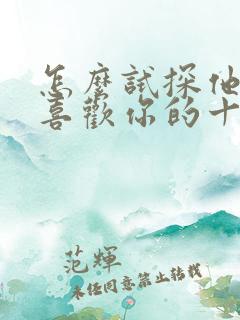 怎麼試探他
喜歡你的十
范輝
未任同意禁止转载